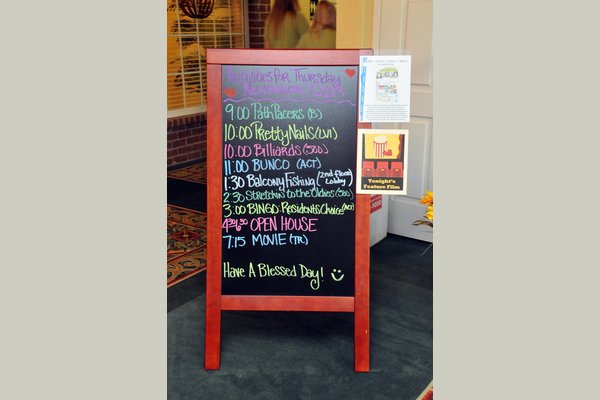 Activities for Thursday
November
9:00 Path Pacers (B)
10:00 Pretty Nails (LVI)
10:00 Billiards (500)
11:00 BUNCO (ACT)
1:30 Balcony Fishing (2nd Floor Lobby)
2:30 Stretchin' to the Oldies (500)
3:00 BINGO Residents Choice (ACT)
4:30-6:30 OPEN HOUSE
7:15 MOVIE (TR)
Have A Blessed Day!
Tonight's
Feature Film